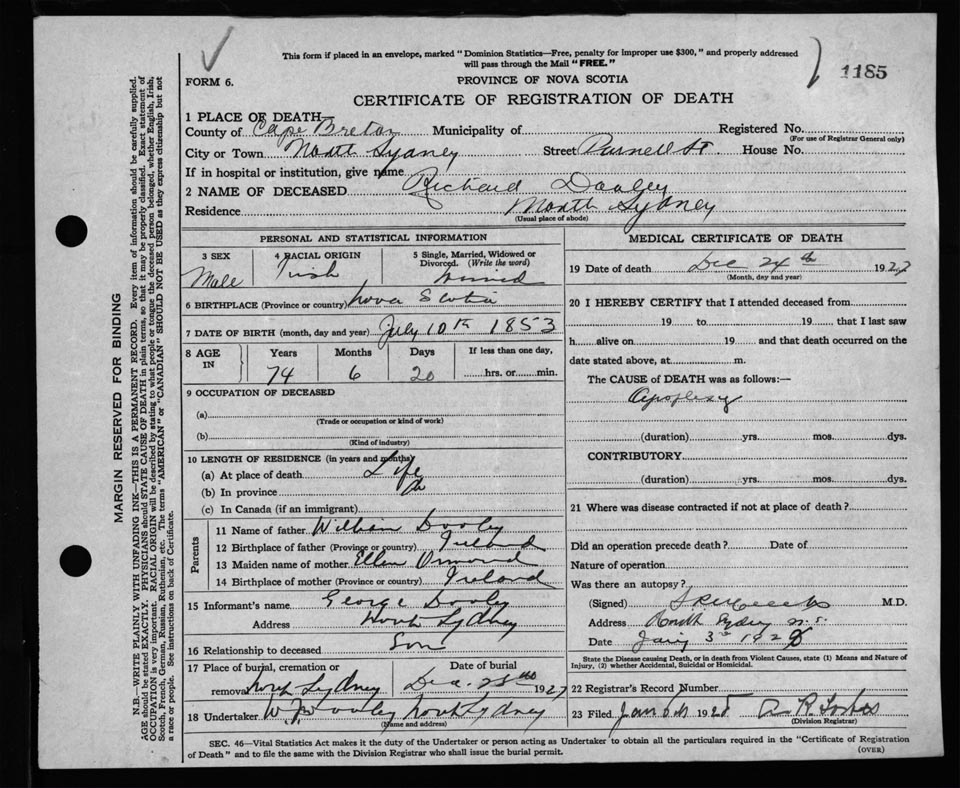 This form if placed in an envelope, marked "Dominion Statistics—Free, penalty for improper use $300," and properly addressed
will pass through the Mail "FREE."
1185
FORM 6.
PROVINCE OF NOVA SCOTIA
CERTIFICATE OF REGISTRATION OF DEATH
1 PLACE OF DEATH
County of Cape Breton Municipality of Registered No.
(For use of Registrar General only)
City or Town North Sydney Street Purnell St House No.
If in hospital or institution, give name
2 NAME OF DECEASED Richard Dooley
Residence North Sydney
(Usual place of abode)
PERSONAL AND STATISTICAL INFORMATION
3 SEX
Male
4 RACIAL ORIGIN
Irish
5 Single, Married, Widowed or
Divorced. (Write the word)
6 BIRTHPLACE (Province or country) Nova Scotia
7 DATE OF BIRTH (month, day and year) July 10th 1853
8 AGE
IN
Years Months Days If less than one day,
74 6 20 hrs. or min.
9 OCCUPATION OF DECEASED
(a)
(Trade or occupation or kind of work)
(b)
(Kind of industry)
10 LENGTH OF RESIDENCE (in years and months)
(a) At place of death Life
(b) In province
(c) In Canada (if an immigrant)
Parents
11 Name of father William Dooley
12 Birthplace of father (Province or country) Ireland
13 Maiden name of mother Ellen Ormond
14 Birthplace of mother (Province or country) Ireland
15 Informant's name George Dooley
Address North Sydney
16 Relationship to deceased Son
17 Place of burial, cremation or
removal North Sydney
Date of burial
Dec. 28th 1927
18 Undertaker W. J. Dooley North Sydney
(Name and address)
MEDICAL CERTIFICATE OF DEATH
19 Date of death Dec 24th 1927
(Month, day and year)
20 I HEREBY CERTIFY that I attended deceased from
19 to 19 that I last saw
h alive on 19 and that death occurred on the
date stated above, at m.
The CAUSE OF DEATH was as follows:—
Apoplexy
(duration) yrs. mos. dys.
CONTRIBUTORY
(duration) yrs. mos. dys.
21 Where was disease contracted if not at place of death?
Did an operation precede death? Date of
Nature of operation
Was there an autopsy?
(Signed) M.D.
Address North Sydney N.S.
Date Jany 3rd 1928
State the Disease causing Death, or in death from Violent Causes, state (1) Means and Nature of
Injury, (2) whether Accidental, Suicidal or Homicidal.
22 Registrar's Record Number
23 Filed Jan 1928 A. R. Forbes
(Division Registrar)
SEC. 46—Vital Statistics Act makes it the duty of the Undertaker or person acting as Undertaker to obtain all the particulars required in the "Certificate of Registration
of Death" and to file the same with the Division Registrar who shall issue the burial permit.
(OVER)
MARGIN RESERVED FOR BINDING
N.B.—WRITE PLAINLY WITH UNFADING INK—THIS IS A PERMANENT RECORD. Every item of information should be carefully supplied.
AGE should be stated EXACTLY. PHYSICIANS should STATE CAUSE OF DEATH in plain terms, so that it may be properly classified. Exact statement of
OCCUPATION is very important. RACIAL ORIGIN will be described by stating to what people or tongue the deceased person belonged, whether English, Irish,
Scotch, French, German, Russian, Ruthenian, etc. The terms "AMERICAN" or "CANADIAN" SHOULD NOT BE USED as they express citizenship but not
a race or people. See instructions on back of Certificate.